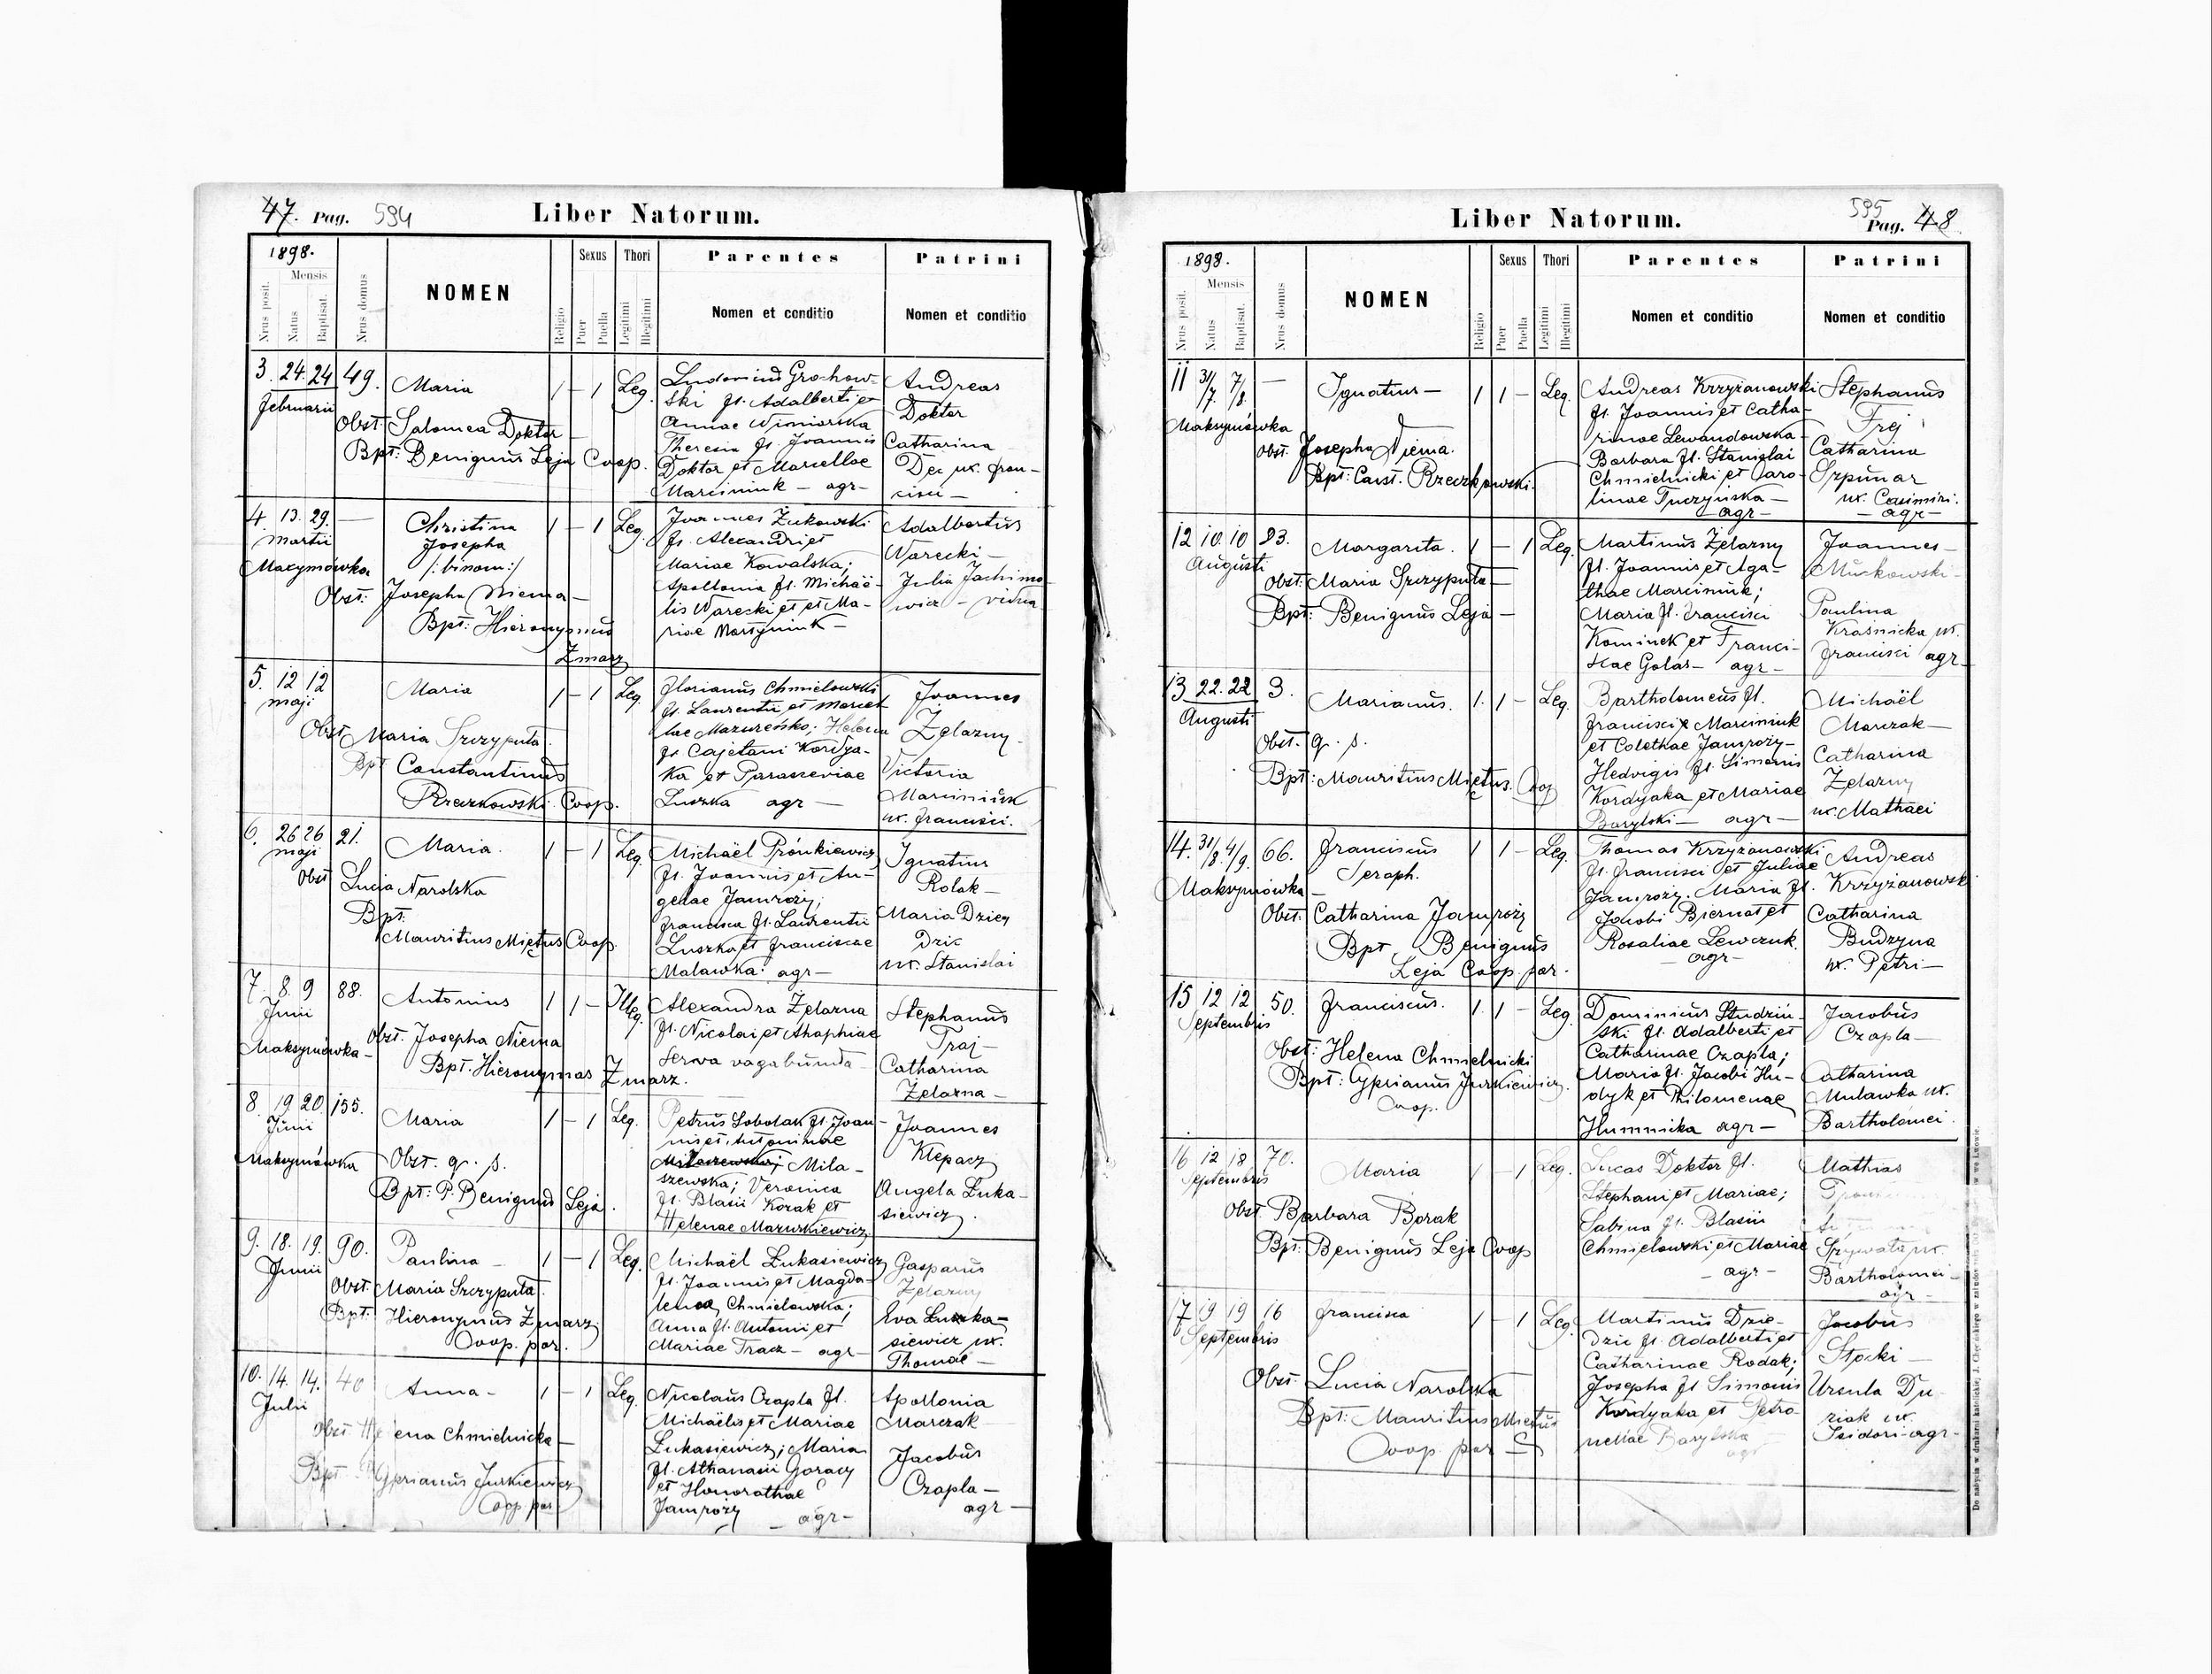 47. Pag. 594
Liber Natorum.
1898.
Nrus posit.
Mensis
Natus
Baptisat.
Nrus domus
NOMEN
Religio
Sexus
Puer
Puella
Thori
Legitimi
Illegitimi
Parentes
Nomen et conditio
Patrini
Nomen et conditio
3. 24. 24 49. Maria 1 — 1 Leg.
Februarii
Obst. Salomea Doktor
Bpt: Benignus Leja Coop.
Ludovicus Grochow-
ski fl. Adalberti et
Annae Wisniorska
Theresia fl. Joannis
Doktor et Marcellae
Marciniuk — agr —
Andreas
Doktor
Catharina
Dec ux. Fran-
cisci —
4. 13. 29. — Christina 1 — 1 Leg.
Martii
Josepha
Maxymówka
/: binom :/
Obst: Josepha Niema —
Bpt: Hieronymus
Zmarz
Joannes Żukowski
fl. Alexandri et
Mariae Kowalska;
Apollonia fl. Michaë-
lis Warecki et et Ma-
riae Martyniuk —
Adalbertus
Warecki —
Julia Jachimo-
wicz — vidua
5. 12 12 Maria 1 — 1 Leg.
Maji
Obst. Maria Szczyputa
Bpt Constantinus
Rzeczkowski Coop.
Florianus Chmielowski
fl. Laurentii et Marcel-
lae Mazureńko; Helena
fl. Cajetani Kordya-
ka et Parasceviae
Luszka agr —
Joannes
Żelazny
Victoria
Marciniuk
ux. Francisci.
6. 26 26 21. Maria. 1 — 1 Leg.
Maji
Obst Lucia Narolska
Bpt:
Mauritius Miętus Coop.
Michaël Prónkiewicz
fl. Joannis et An-
gelae Jamroży;
Francisca fl. Laurentii
Luszka et Franciscae
Malawka. agr —
Ignatius
Rolak —
Maria Dzie
dzic
ux. Stanislai
7. 8. 9 88. Antonius 1 1 — Illeg.
Junii
Obst. Josepha Niema
Maksymówka —
Bpt. Hieronymus Zmarz.
Alexandra Żelazna
fl. Nicolai et Ahaphiae
serva vagabunda
Stephanus
Traj —
Catharina
Żelazna —
8. 19 20. 155. Maria 1 — 1 Leg.
Junii
Maksymówka
Obst. q. s.
Bpt: P. Benignus Leja.
Petrus Sobolak fl. Joan-
nis et Antoninae
Mila-
szewska; Veronica
fl. Blasii Kozak et
Helenae Mazurkiewicz
Joannes
Klepacz
Angela Łuka-
siewicz.
9. 18. 19. 90. Paulina — 1 — 1 Leg.
Junii
Obst: Maria Szczyputa
Bpt: Hieronymus Zmarz
Coop. par.
Michaël Łukasiewicz
fl. Joannis et Magda-
lenae Chmielowska;
Anna fl. Antonii et
Mariae Tracz — agr —
Gasparus
Żelazny
Eva Łuka-
siewicz ux.
Thomae —
10. 14. 14. 40 Anna — 1 — 1 Leg.
Julii
Obst. Helena Chmielnicka —
Bpt Cyprianus Jurkiewicz
Coop. par.
Nicolaus Czapla fl.
Michaëlis et Mariae
Łukasiewicz; Maria
fl. Athanasii Goracy
et Honorathae
Jamroży — agr —
Apollonia
Marczak
Jacobus
Czapla —
agr —
Liber Natorum.
595
Pag. 48
1898.
Nrus posit.
Mensis
Natus
Baptisat.
Nrus domus
NOMEN
Religio
Sexus
Puer
Puella
Thori
Legitimi
Illegitimi
Parentes
Nomen et conditio
Patrini
Nomen et conditio
11 31/7. 7/8. — Ignatius — 1 1 — Leg.
Maksymówka
Obst: Josepha Niema.
Bpt: Const. Rzeczkowski.
Andreas Krzyżanowski
fl. Joannis et Catha-
rinae Lewandowska
Barbara fl. Stanislai
Chmielnicki et Caro-
linae Tuczyńska —
agr —
Stephanus
Frej
Catharina
Szpunar
ux. Casimiri.
— agr —
12 10. 10 23. Margarita. 1 — 1 Leg.
Augusti
Obst: Maria Szczyputa —
Bpt: Benignus Leja —
Martinus Żelazny
fl. Joannis et Aga-
thae Marciniuk;
Maria fl. Francisci
Kominek et Franci-
scae Golas — agr —
Joannes —
Murkowski —
Paulina
Kraśnicka ux.
Francisci agr —
13 22. 22 3. Marianus. 1. 1 — Leg.
Augusti
Obst. q. s.
Bpt: Mauritius Miętus. Coop
Bartholomeus fl.
Francisci Marciniuk
et Colethae Jamroży —
Hedvigis fl. Simonis
Kordyaka et Mariae
Barylski — agr —
Michaël
Marczak —
Catharina
Żelazny
ux. Mathaei
14. 31/8. 4/9. 66. Franciscus 1 1 — Leg.
Seraph.
Maksymówka —
Obst. Catharina Jamroży
Bpt. Benignus
Leja Coop. par.
Thomas Krzyżanowski
fl. Francisci et Juliae
Jamroży. Maria fl.
Jacobi Biernat et
Rosaliae Lewczuk.
— agr —
Andreas
Krzyżanowski
Catharina
Budzyna
ux. Petri —
15 12 12 50. Franciscus. 1. 1 — Leg.
Septembris
Obst: Helena Chmielnicki
Bpt: Cyprianus Jurkiewicz.
Coop.
Dominicus Studziń-
ski fl. Adalberti et
Catharinae Czapla;
Maria fl. Jacobi Hu-
dyk et Philomenae
Humnicka agr —
Jacobus
Czapla —
Catharina
Mulawka ux.
Bartholomei.
16 12 18 70. Maria 1 — 1 Leg.
Septembris
Obst Barbara Borak
Bpt: Benignus Leja Coop
Lucas Doktor fl.
Stephani et Mariae;
Sabina fl. Blasii
Chmielowski et Mariae
— agr —
Mathias
ux.
Bartholomei —
agr —
17 19 19 16 Francisca 1 — 1 Leg.
Septembris
Obst. Lucia Narolska
Bpt: Mauritius Miętus
Coop. par
Martinus Dzie-
dzic fl. Adalberti et
Catharinae Rodak;
Josepha fl Simonis
Kordyaka et Petro-
nellae Barylska
agr
Jacobus
Stocki —
Ursula Du-
riak ux.
Isidori agr —
Do nabycia w drukarni katolickiej
we Lwowie.